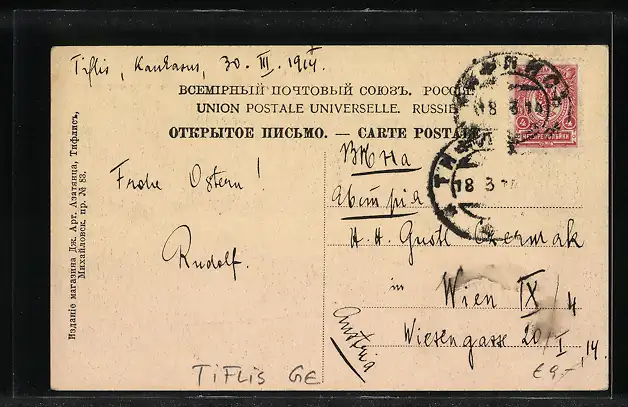 Tiflis, Kaukasus, 30. III. 1914.
ВСЕМІРНЫЙ ПОЧТОВЫЙ СОЮЗЪ. РОССІЯ
UNION POSTALE UNIVERSELLE. RUSSIE
ОТКРЫТОЕ ПИСЬМО. — CARTE POSTALE
Изданіе магазина Дж. Арт. Азатянца, Тифлисъ,
Михайловск. пр. № 83.
18 3 14
18 3 14
4 4
Frohe Ostern!
Rudolf.
Вѣна
Австрія
H. H. Gustl Czermak
in
Wien IX/4
Wiesengasse 20/I, 14.
Austria
TiFLiS GE
€9,-